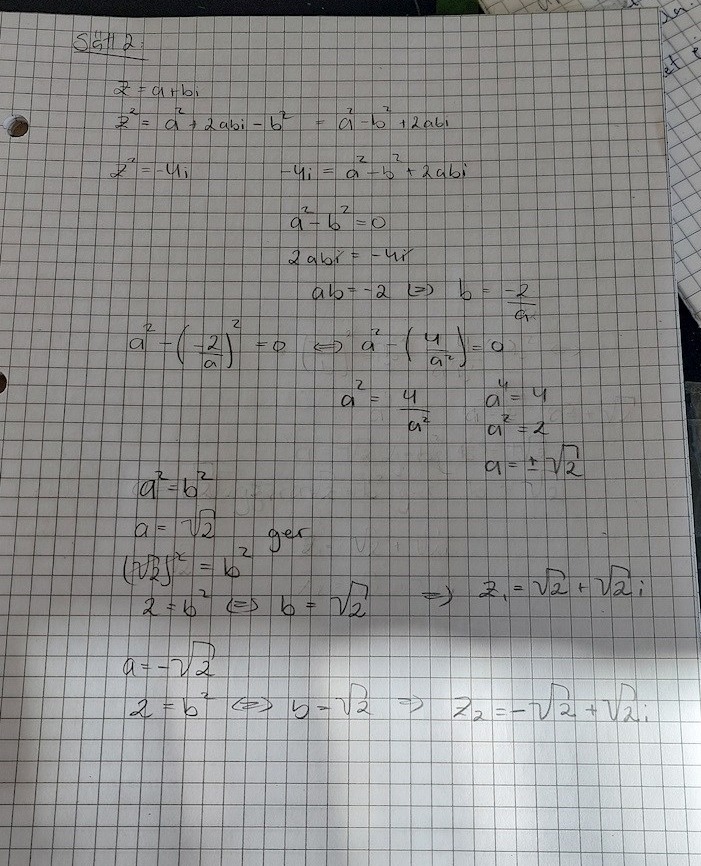 Sätt 2:
z = a+bi
z² = a² + 2abi - b² = a² - b² + 2abi
z² = -4i -4i = a² - b² + 2abi
a² - b² = 0
2abi = -4i
ab = -2 ⇔ b = -2/a
a² - (-2/a)² = 0 ⇔ a² - (4/a²) = 0
a² = 4/a² a⁴ = 4
a² = 2
a = ±√2
a² = b²
a = √2 ger
(√2)² = b²
2 = b² ⇔ b = √2 ⇒ z₁ = √2 + √2 i
a = -√2
2 = b² ⇔ b = √2 ⇒ z₂ = -√2 + √2 i